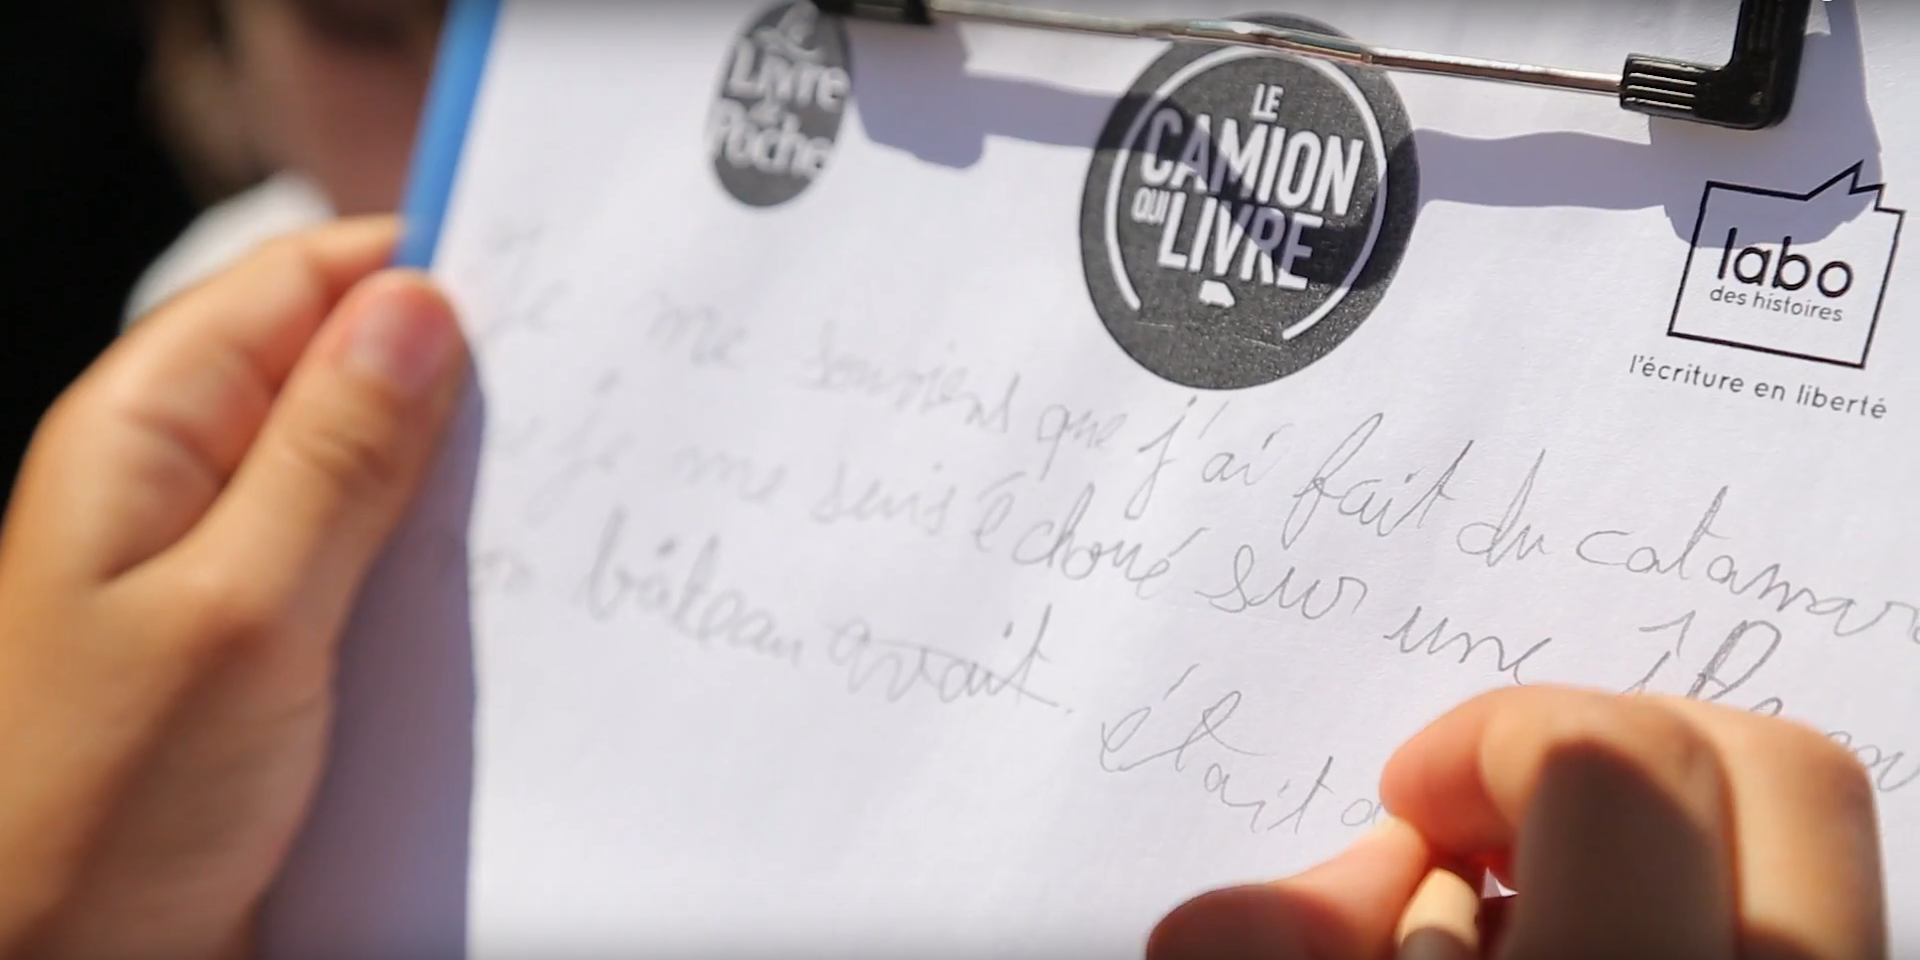 Le
Livre
de
Poche
LE
CAMION
QUI
LIVRE
labo
des histoires
l'écriture en liberté
Je me souviens que j'ai fait du
je me suis échoué sur une île
bâteau avait était